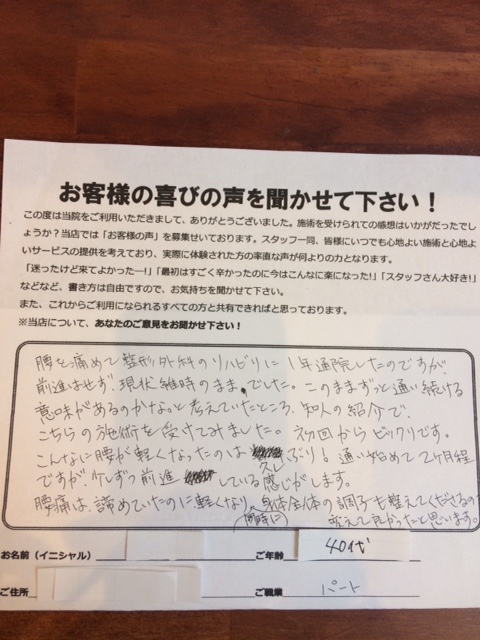 お客様の喜びの声を聞かせて下さい！
この度は当院をご利用いただきまして、ありがとうございました。施術を受けられての感想はいかがだったでし
ょうか？当店では「お客様の声」を募集せいております。スタッフ一同、皆様にいつでも心地よい施術と心地よ
いサービスの提供を考えており、実際に体験された方の率直な声が何よりの力となります。
「迷ったけど来てよかったー！」「最初はすごく辛かったのに今はこんなに楽になった！」「スタッフさん大好き！」
などなど、書き方は自由ですので、お気持ちを聞かせて下さい。
また、これからご利用になられるすべての方と共有できればと思っております。
※当店について、あなたのご意見をお聞かせ下さい！
腰を痛めて整形外科のリハビリに1年通院したのですが、
前進はせず、現状維時のままでした。このままずっと通い続ける
意味があるのかな。と考えていたところ、知人の紹介で、
こちらの施術を受けてみました。初回からビックリです。
こんなに腰が軽くなったのは久しぶり！通い始めて2ヶ月程
ですが少しずつ前進している感じがします。
腰痛は、諦めていたのに軽くなり、同時に身体全体の調子も整えてくださるので
変えて良かったと思います。
お名前（イニシャル） ご年齢 40代
ご住所 ご職業 パート